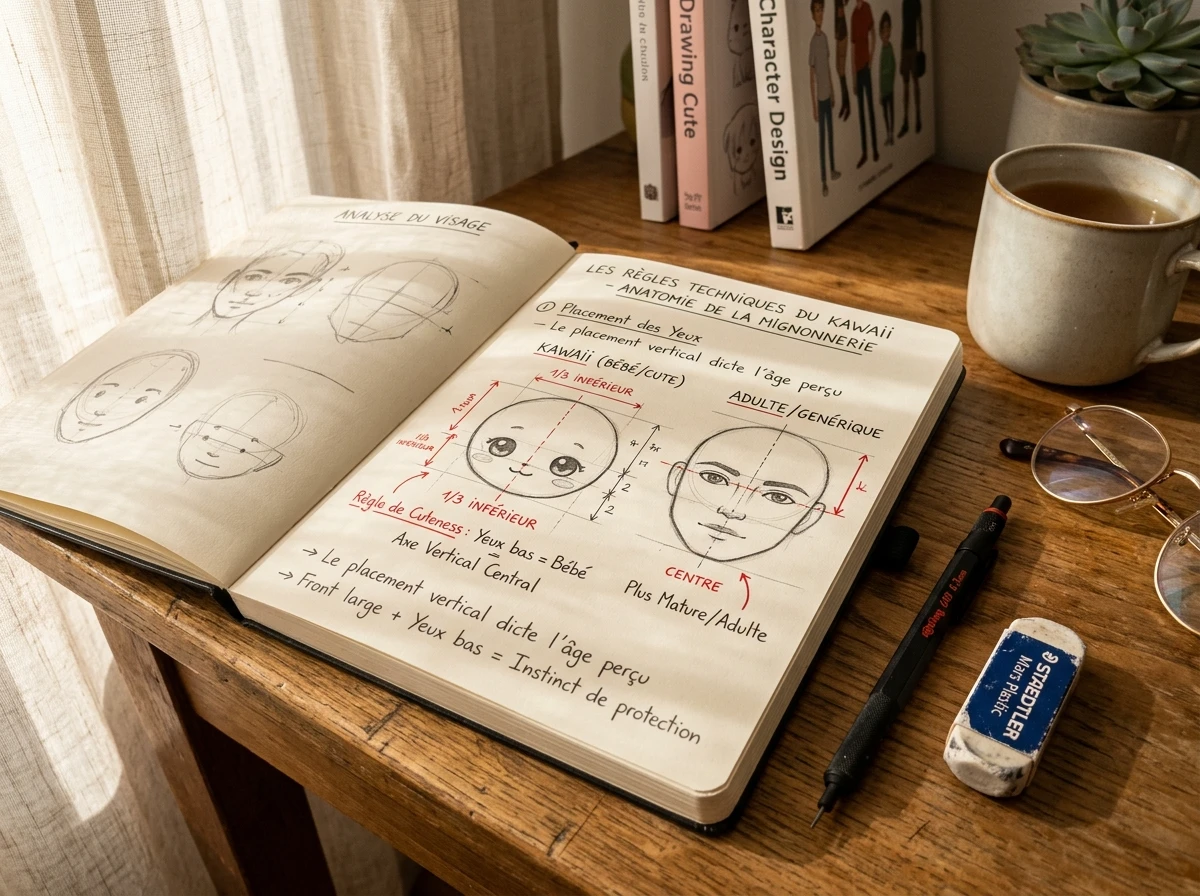 ANALYSE DU VISAGE
LES RÈGLES TECHNIQUES DU KAWAII
- ANATOMIE DE LA MIGNONNERIE
① Placement des Yeux
- Le placement vertical dicte l'âge perçu
KAWAII (BÉBÉ/CUTE)
1/3 INFÉRIEUR
2
2
1/3 INFÉRIEUR
Règle de Cuteness : Yeux bas = Bébé
Axe Vertical Central
ADULTE/GENÉRIQUE
CENTRE
Plus Mature/Adulte
→ Le placement vertical dicte l'âge perçu
→ Front large + Yeux bas = Instinct de protection
Drawing Cute
Character Design
STAEDTLER
Mars Plastic